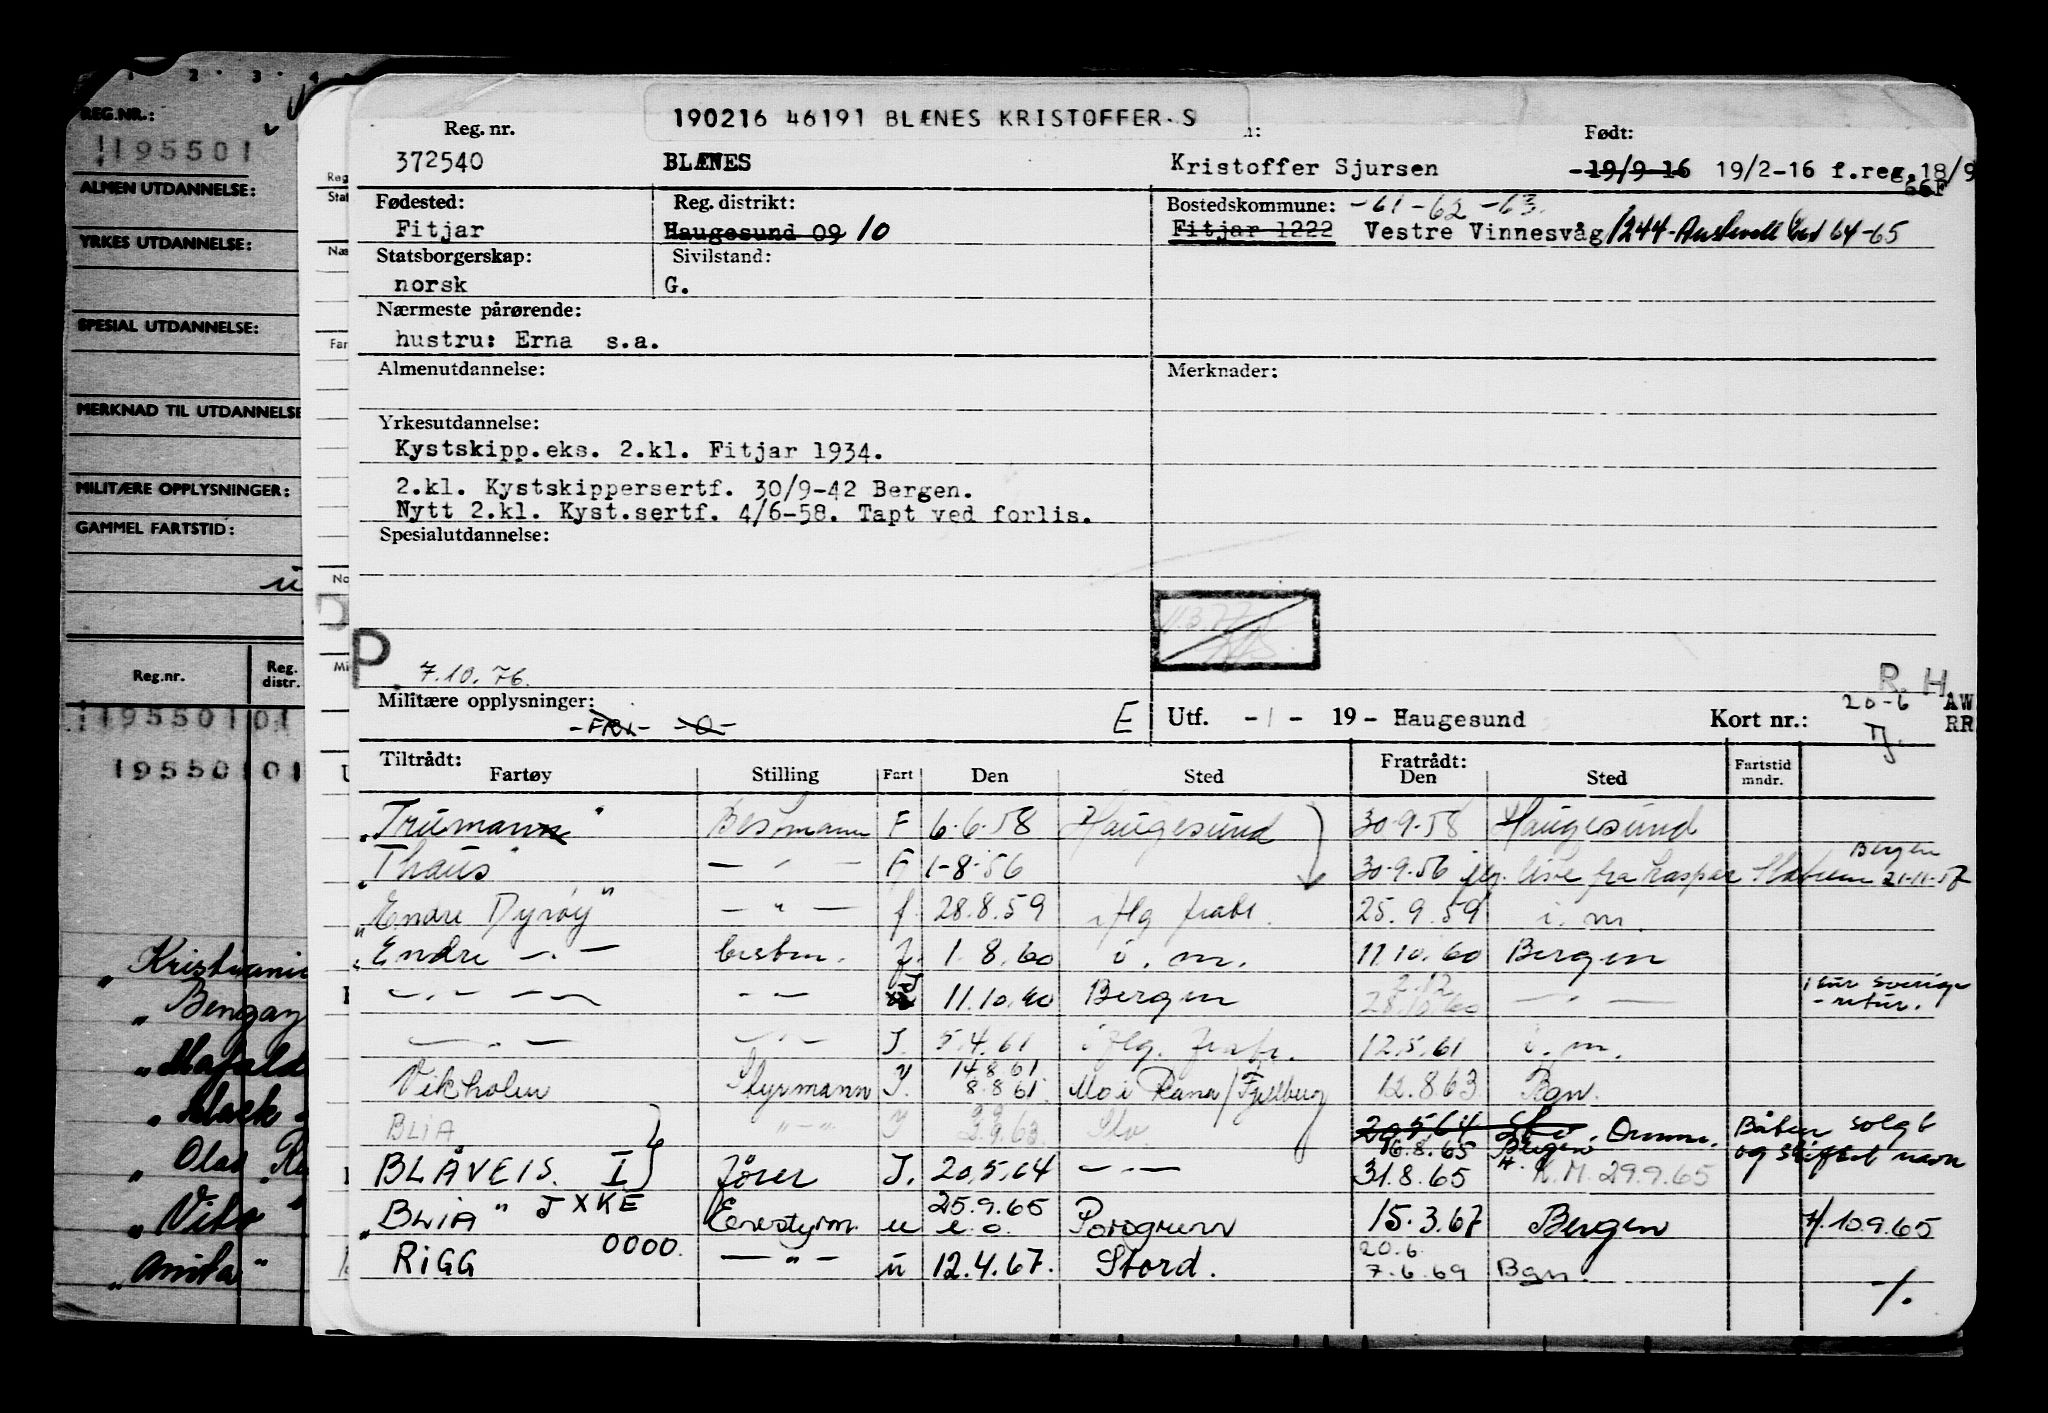 1 2 3 4
REG.NR.:
195501
ALMEN UTDANNELSE:
YRKES UTDANNELSE:
SPESIAL UTDANNELSE:
MERKNAD TIL UTDANNELSE
MILITÆRE OPPLYSNINGER:
GAMMEL FARTSTID:
Reg.nr. Reg. distr.
195501 01
195501 01
„Bengay
„Vito"
„Anita"
190216 46191 BLÆNES KRISTOFFER.S
Reg. nr. Født:
372540 BLÆNES Kristoffer Sjursen -19/9-16 19/2-16 f.reg.18/9
66F
Fødested: Reg. distrikt: Bostedskommune: -61-62-63.
Fitjar Haugesund 09 10 Fitjar 1222 Vestre Vinnesvåg 1244-Austevoll 64-65
Statsborgerskap: Sivilstand:
norsk G.
Nærmeste pårørende:
hustru: Erna s.a.
Almenutdannelse: Merknader:
Yrkesutdannelse:
Kystskipp.eks. 2.kl. Fitjar 1934.
2.kl. Kystskippersertf. 30/9-42 Bergen.
Nytt 2.kl. Kyst.sertf. 4/6-58. Tapt ved forlis.
Spesialutdannelse:
11.3.77
P 7.10.76.
R. H
Militære opplysninger: -FRI- -O- E Utf. -1- 19 - Haugesund Kort nr.: 20-6 AW
RR
Tiltrådt: Fratrådt:
Fartøy Stilling Fart Den Sted Den Sted Fartstid mndr.
„Trumann" Bestmann F 6.6.58 Haugesund 30.9.58 Haugesund
„Thaus" — " — F 1-8-56 30.9.56 Bergen 21-11-57
„Endre Dyrøy" — " — f. 28.8.59 iflg frabr. 25.9.59 i.m.
„Endre — . — bestm. f. 1.8.60 i.m. 11.10.60 Bergen
— " — — — 11.10.60 Bergen 2.12 28.10.60 — " — 1 tur Sverige - retur.
— " — — " — J. 5.4.61 iflg. frabr. 12.5.61 i.m.
Vikholm Styrmann J. 14.8.61 8.8.61 Mo i Rana/Fjellberg 12.8.63 Bgn.
BLIA — " — J 9.9.63 Sto 20.5.64 16.8.65 Bergen Båten solgt og skiftet navn
BLÅVEIS. I fører J. 20.5.64 — " — 31.8.65 K.M. 29.9.65
„BLIA" JXKE Enestyrm u 25.9.65 e.o. Porsgrunn 15.3.67 Bergen H.10.9.65
RIGG OOOO. — " — u 12.4.67. Stord. 20.6 7.6.69 Bgn. -/.